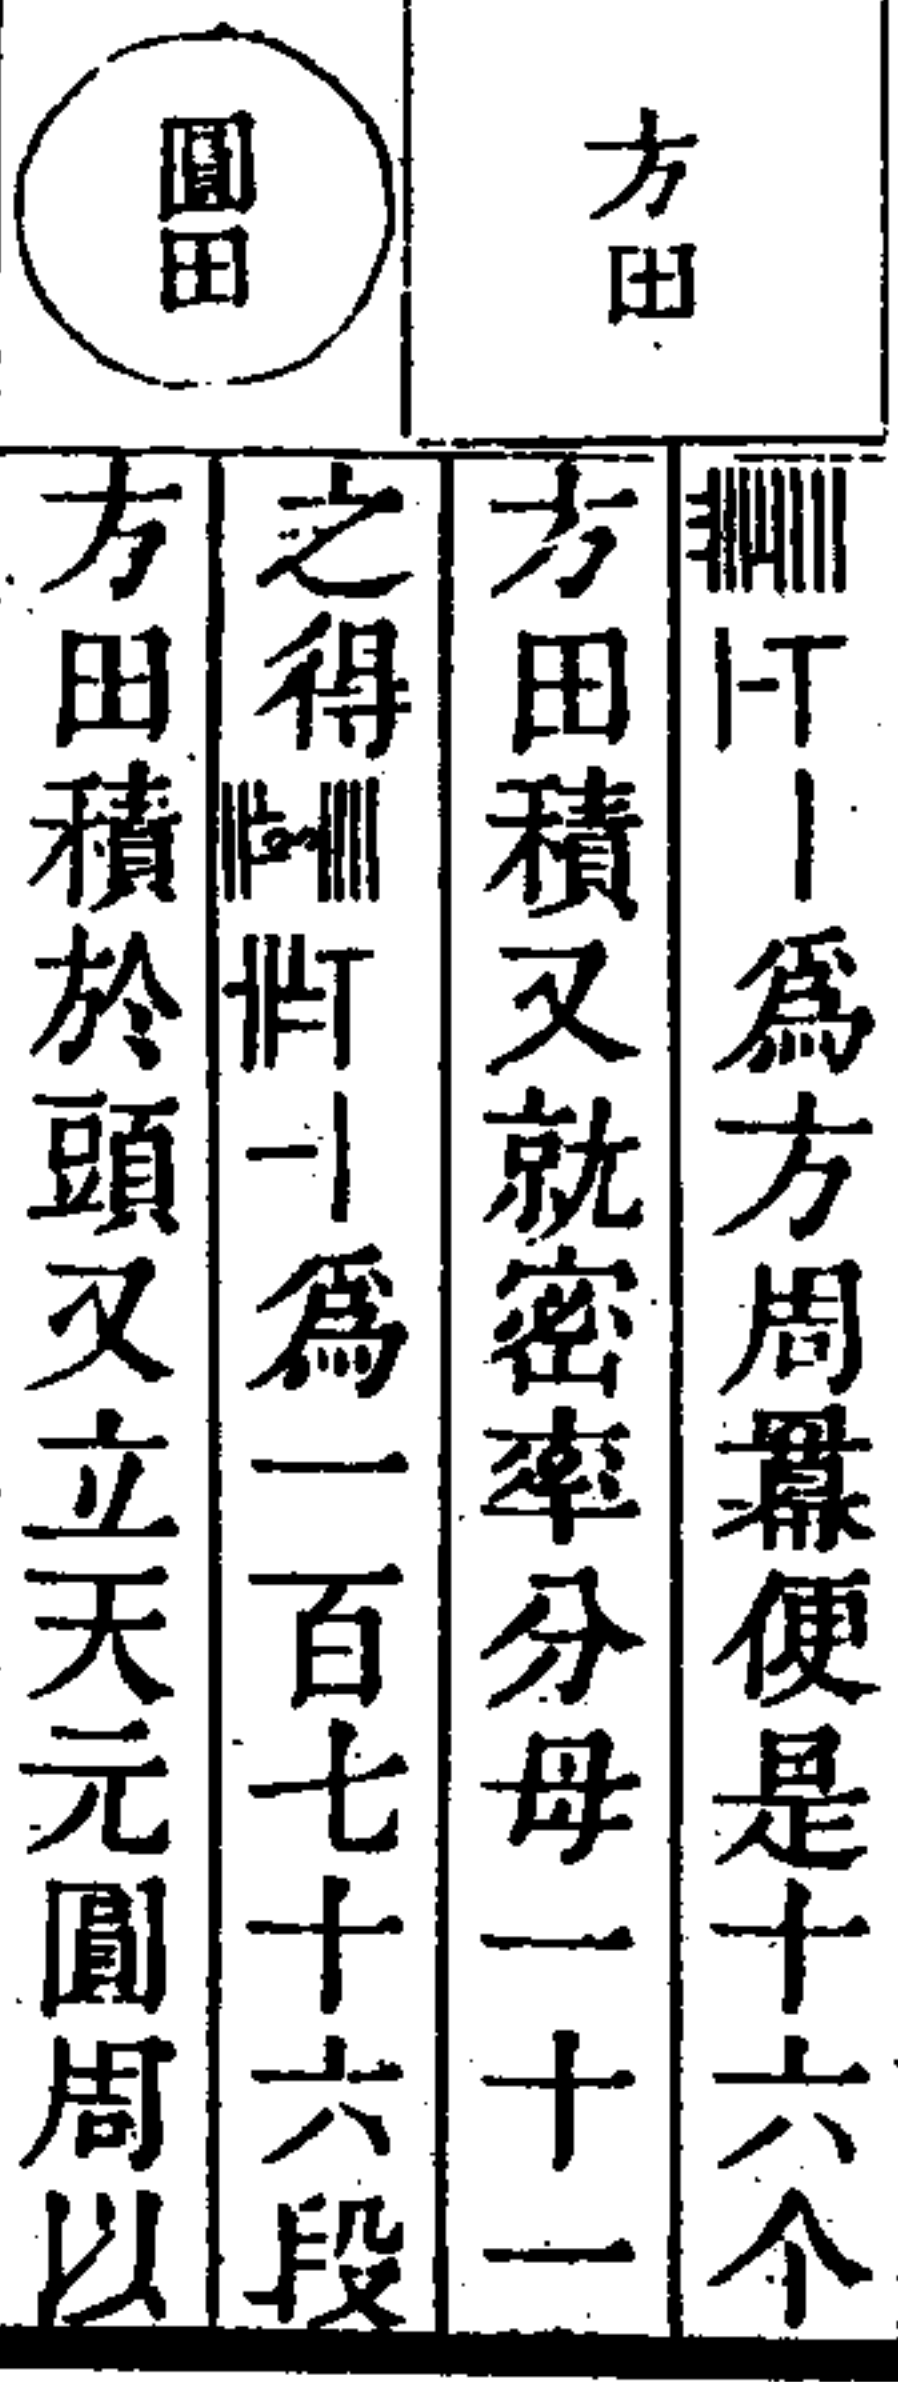 方田
圓田
爲方周羃便是十六个
方田積又就密率分母一十一
之得
爲一百七十六段
方田積於頭又立天元圓周以